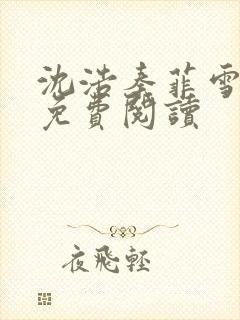 沈浩秦菲雪
免費閱讀
夜飛輕